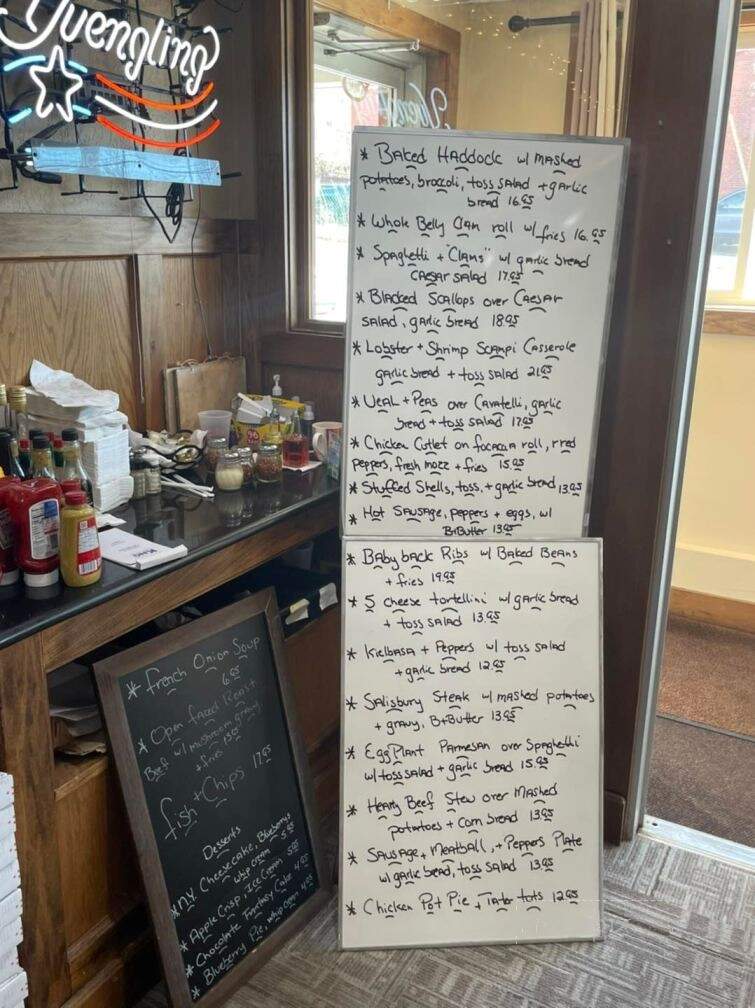 Yuengling
* Baked Haddock w/ mashed
potatoes, broccoli, toss salad + garlic
bread 16.95
* Whole Belly Clam roll w/ fries 16.95
* Spaghetti + "Clams" w/ garlic bread
Caesar salad 17.95
* Blacked Scallops over Caesar
salad, garlic bread 18.95
* Lobster + Shrimp Scampi Casserole
garlic bread + toss salad 21.95
* Veal + Peas over Cavatelli, garlic
bread + toss salad 17.95
* Chicken Cutlet on focaccia roll, r red
peppers, fresh mozz + fries 15.95
* Stuffed Shells, toss, + garlic bread 13.95
* Hot Sausage, peppers + eggs, w/
B+Butter 13.95
* Baby back Ribs w/ Baked Beans
+ fries 19.95
* 5 cheese tortellini w/ garlic bread
+ toss salad 13.95
* Kielbasa + Peppers w/ toss salad
+ garlic bread 12.95
* Salisbury Steak w/ mashed potatoes
+ gravy, B+Butter 13.95
* EggPlant Parmesan over Spaghetti
w/ toss salad + garlic bread 15.95
* Hearty Beef Stew over Mashed
potatoes + Corn bread 13.95
* Sausage, Meatball, + Peppers Plate
w/ garlic bead, toss salad 13.95
* Chicken Pot Pie, Tater tots 12.95
* French Onion Soup
6.95
* Open faced Roast
Beef w/ mushroom gravy
+ fries 13.95
fish + Chips 17.95
Desserts
* N.Y Cheesecake, Blueberrys
whip cream 5.95
* Apple Crisp, Ice Cream 5.95
* Chocolate Fantasy Cake 4.95
* Blueberry Pie, whip cream 4.95